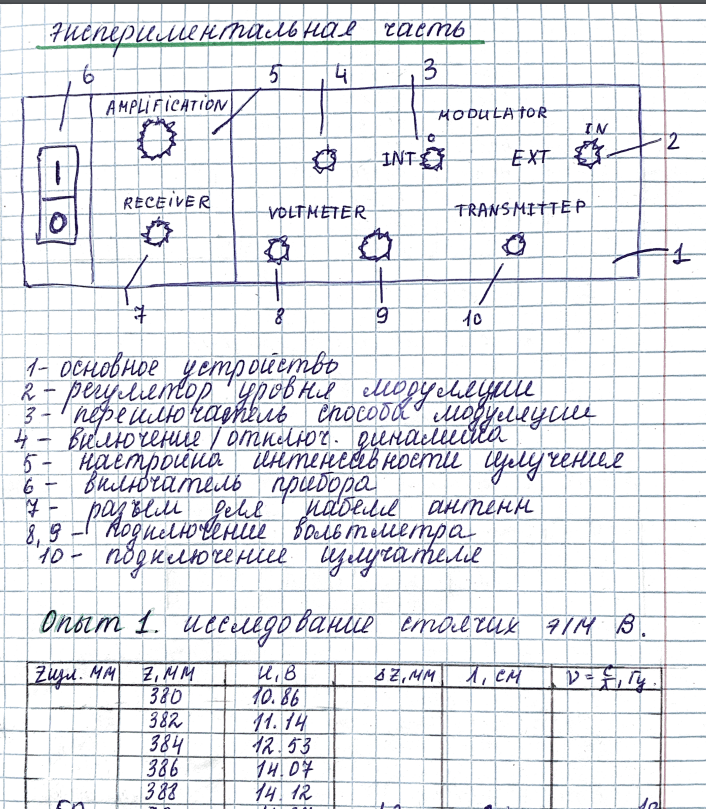 Экспериментальная часть
6 5 4 3
AMPLIFICATION
MODULATOR
IN
I INT 0 EXT 2
0 RECEIVER VOLTMETER TRANSMITTEP
1
7 8 9 10
1- основное устройство
2 - регулятор уровня модуляции
3 - переключатель способа модуляции
4 - включение/отключ. динамика
5 - настройка интенсивности излучения
6 - включатель прибора
7 - разъем для кабеля антенн
8, 9 - подключение вольтметра
10 - подключение излучателя
Опыт 1. исследование стоячих ЭМ В.
Zизл. мм Z, мм U, В ΔZ, мм λ, см ν = c/λ, Гц.
380 10.86
382 11.14
384 12.53
386 14.07
388 14.12